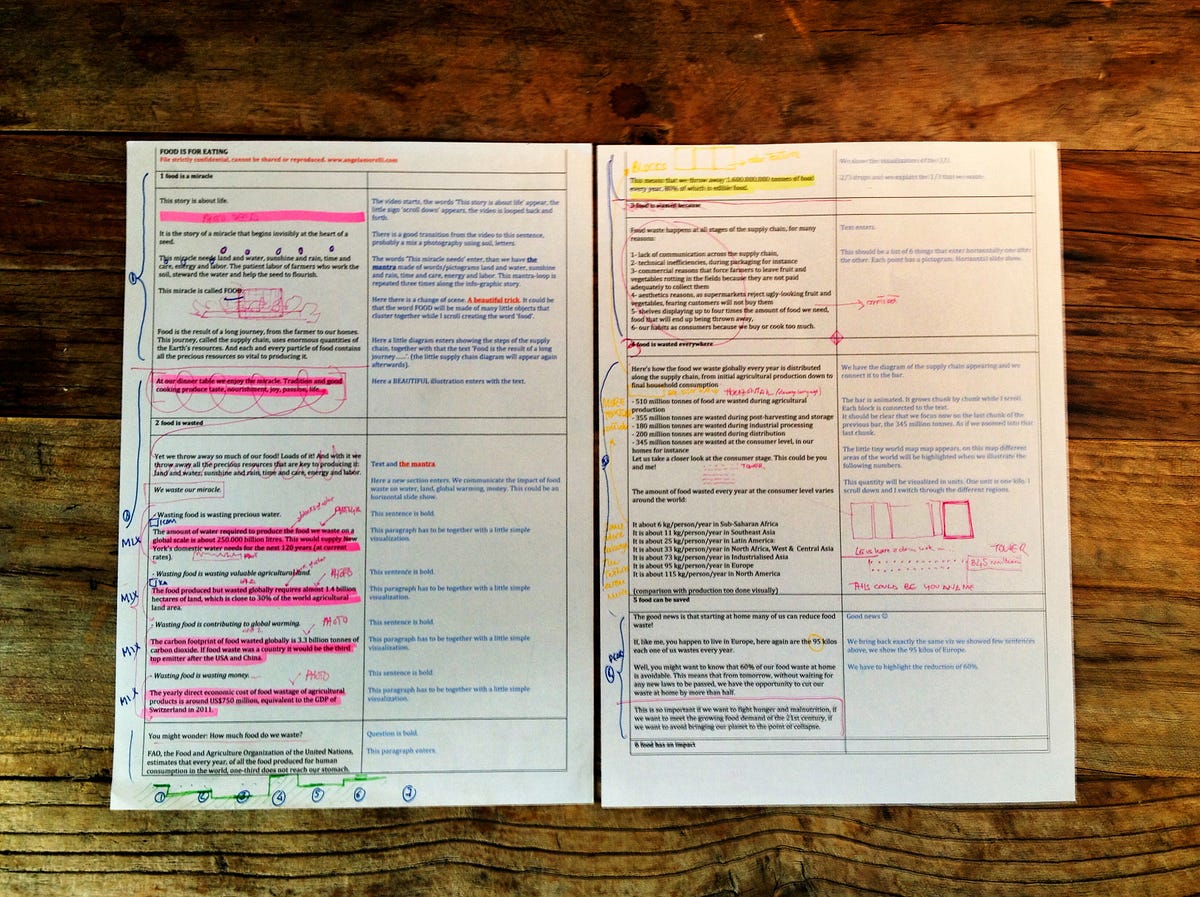 FOOD IS FOR EATING
File strictly confidential, cannot be shared or reproduced. www.angelamorelli.com
1 food is a miracle
This story is about life.
The video starts, the words 'This story is about life' appear, the
little sign 'scroll down' appears, the video is looped back and
forth.
It is the story of a miracle that begins invisibly at the heart of a
seed.
There is a good transition from the video to this sentence,
probably a mix a photography using soil, letters.
This miracle needs land and water, sunshine and rain, time and
care, energy and labor. The patient labor of farmers who work the
soil, steward the water and help the seed to flourish.
The words 'This miracle needs' enter, than we have the
mantra made of words/pictograms land and water, sunshine
and rain, time and care, energy and labor. This mantra-loop is
repeated three times along the info-graphic story.
This miracle is called FOOD.
Here there is a change of scene. A beautiful trick. It could be
that the word FOOD will be made of many little objects that
cluster together while I scroll creating the word 'food'.
Food is the result of a long journey, from the farmer to our homes.
This journey, called the supply chain, uses enormous quantities of
the Earth's resources. And each and every particle of food contains
all the precious resources so vital to producing it.
Here a little diagram enters showing the steps of the supply
chain, together with that the text 'Food is the result of a long
journey.....'. (the little supply chain diagram will appear again
afterwards).
At our dinner table we enjoy the miracle. Tradition and good
cooking produce taste, nourishment, joy, passion, life.
Here a BEAUTIFUL illustration enters with the text.
2 food is wasted
Yet we throw away so much of our food! Loads of it! And with it we
throw away all the precious resources that are key to producing it:
land and water, sunshine and rain, time and care, energy and labor.
Text and the mantra
We waste our miracle.
Here a new section enters. We communicate the impact of food
waste on water, land, global warming, money. This could be an
horizontal slide show.
- Wasting food is wasting precious water.
This sentence is bold.
ICON
MIX
The amount of water required to produce the food we waste on a
global scale is about 250.000 billion litres. This would supply New
York's domestic water needs for the next 120 years (at current
rates).
This paragraph has to be together with a little simple
visualization.
- Wasting food is wasting valuable agricultural land.
PHOTO
This sentence is bold.
MIX
The food produced but wasted globally requires almost 1.4 billion
hectares of land, which is close to 30% of the world agricultural
land area.
This paragraph has to be together with a little simple
visualization.
- Wasting food is contributing to global warming.
PHOTO
This sentence is bold.
MIX
The carbon footprint of food wasted globally is 3.3 billion tonnes of
carbon dioxide. If food waste was a country it would be the third
top emitter after the USA and China.
This paragraph has to be together with a little simple
visualization.
- Wasting food is wasting money.
PHOTO
This sentence is bold
MIX
The yearly direct economic cost of food wastage of agricultural
products is around US$750 million, equivalent to the GDP of
Switzerland in 2011.
This paragraph has to be together with a little simple
visualization.
You might wonder: How much food do we waste?
Question is bold.
FAO, the Food and Agriculture Organization of the United Nations,
estimates that every year, of all the food produced for human
consumption in the world, one-third does not reach our stomach.
This paragraph enters.
1 2 3 4 5 6 7
BLOCKS
This means that we throw away 1.600.000.000 tonnes of food
every year, 80% of which is edible food.
We show the visualization of the 1/3.
2/3 drops and we explain the 1/3 that we waste.
3 food is wasted because
Food waste happens at all stages of the supply chain, for many
reasons:
Text enters.
1- lack of communication across the supply chain,
2- technical inefficiencies, during packaging for instance
3- commercial reasons that force farmers to leave fruit and
vegetables rotting in the fields because they are not paid
adequately to collect them
4- aesthetics reasons, as supermarkets reject ugly-looking fruit and
vegetables, fearing customers will not buy them
5- shelves displaying up to four times the amount of food we need,
food that will end up being thrown away,
6- our habits as consumers because we buy or cook too much.
This should be a list of 6 things that enter horizontally one after
the other. Each point has a pictogram. Horizontal slide show.
food is wasted everywhere
Here's how the food we waste globally every year is distributed
along the supply chain, from initial agricultural production down to
final household consumption
We have the diagram of the supply chain appearing and we
connect it to the bar.
- 510 million tonnes of food are wasted during agricultural
production
- 355 million tonnes are wasted during post-harvesting and storage
- 180 million tonnes are wasted during industrial processing
- 200 million tonnes are wasted during distribution
- 345 million tonnes are wasted at the consumer level, in our
homes for instance
Let us take a closer look at the consumer stage. This could be you
and me!
TOWER
The bar is animated. It grows chunk by chunk while I scroll.
Each block is connected to the text.
It should be clear that we focus now on the last chunk of the
previous bar, the 345 million tonnes. As if we zoomed into that
last chunk.
The little tiny world map map appears, on this map different
areas of the world will be highlighted when we illustrate the
following numbers.
The amount of food wasted every year at the consumer level varies
around the world:
This quantity will be visualized in units. One unit is one kilo. I
scroll down and I switch through the different regions.
It is about 6 kg/person/year in Sub-Saharan Africa
It is about 11 kg/person/year in Southeast Asia
It is about 25 kg/person/year in Latin America
It is about 33 kg/person/year in North Africa, West & Central Asia
It is about 73 kg/person/year in Industrialised Asia
It is about 95 kg/person/year in Europe
It is about 115 kg/person/year in North America
TOWER
THIS COULD BE YOU AND ME
(comparison with production too done visually)
5 food can be saved
The good news is that starting at home many of us can reduce food
waste!
Good news ☺
If, like me, you happen to live in Europe, here again are the 95 kilos
each one of us wastes every year.
We bring back exactly the same viz we showed few sentences
above, we show the 95 kilos of Europe.
Well, you might want to know that 60% of our food waste at home
is avoidable. This means that from tomorrow, without waiting for
any new laws to be passed, we have the opportunity to cut our
waste at home by more than half.
We have to highlight the reduction of 60%.
This is so important if we want to fight hunger and malnutrition, if
we want to meet the growing food demand of the 21st century, if
we want to avoid bringing our planet to the point of collapse.
6 food has an impact